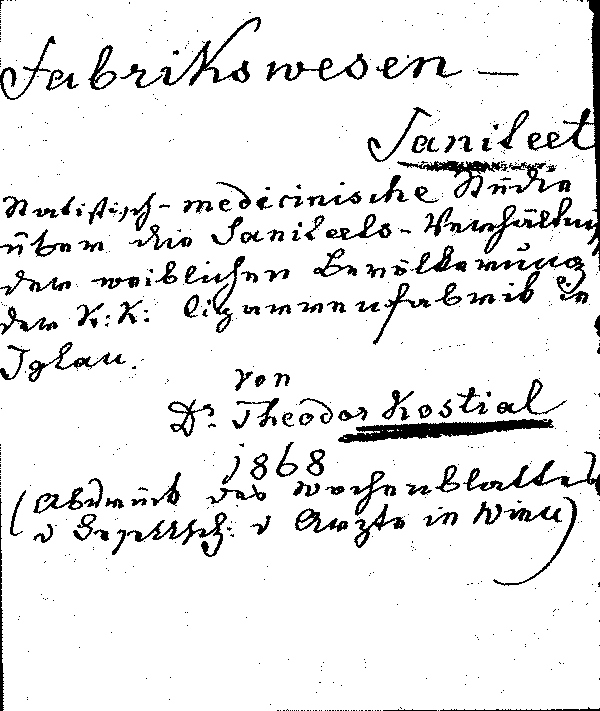 Fabrikswesen —
Saniteet
Statistisch-medicinische Studie
über die Saniteets-Verhältniss
der weiblichen Bevölkerung
der K: K: Cigarrenfabrik in
Iglau.
von
Dr. Theodor Kostial
1868
(Abdruck des Wochenblattes
d Gesellsch: d Aerzte in Wien)